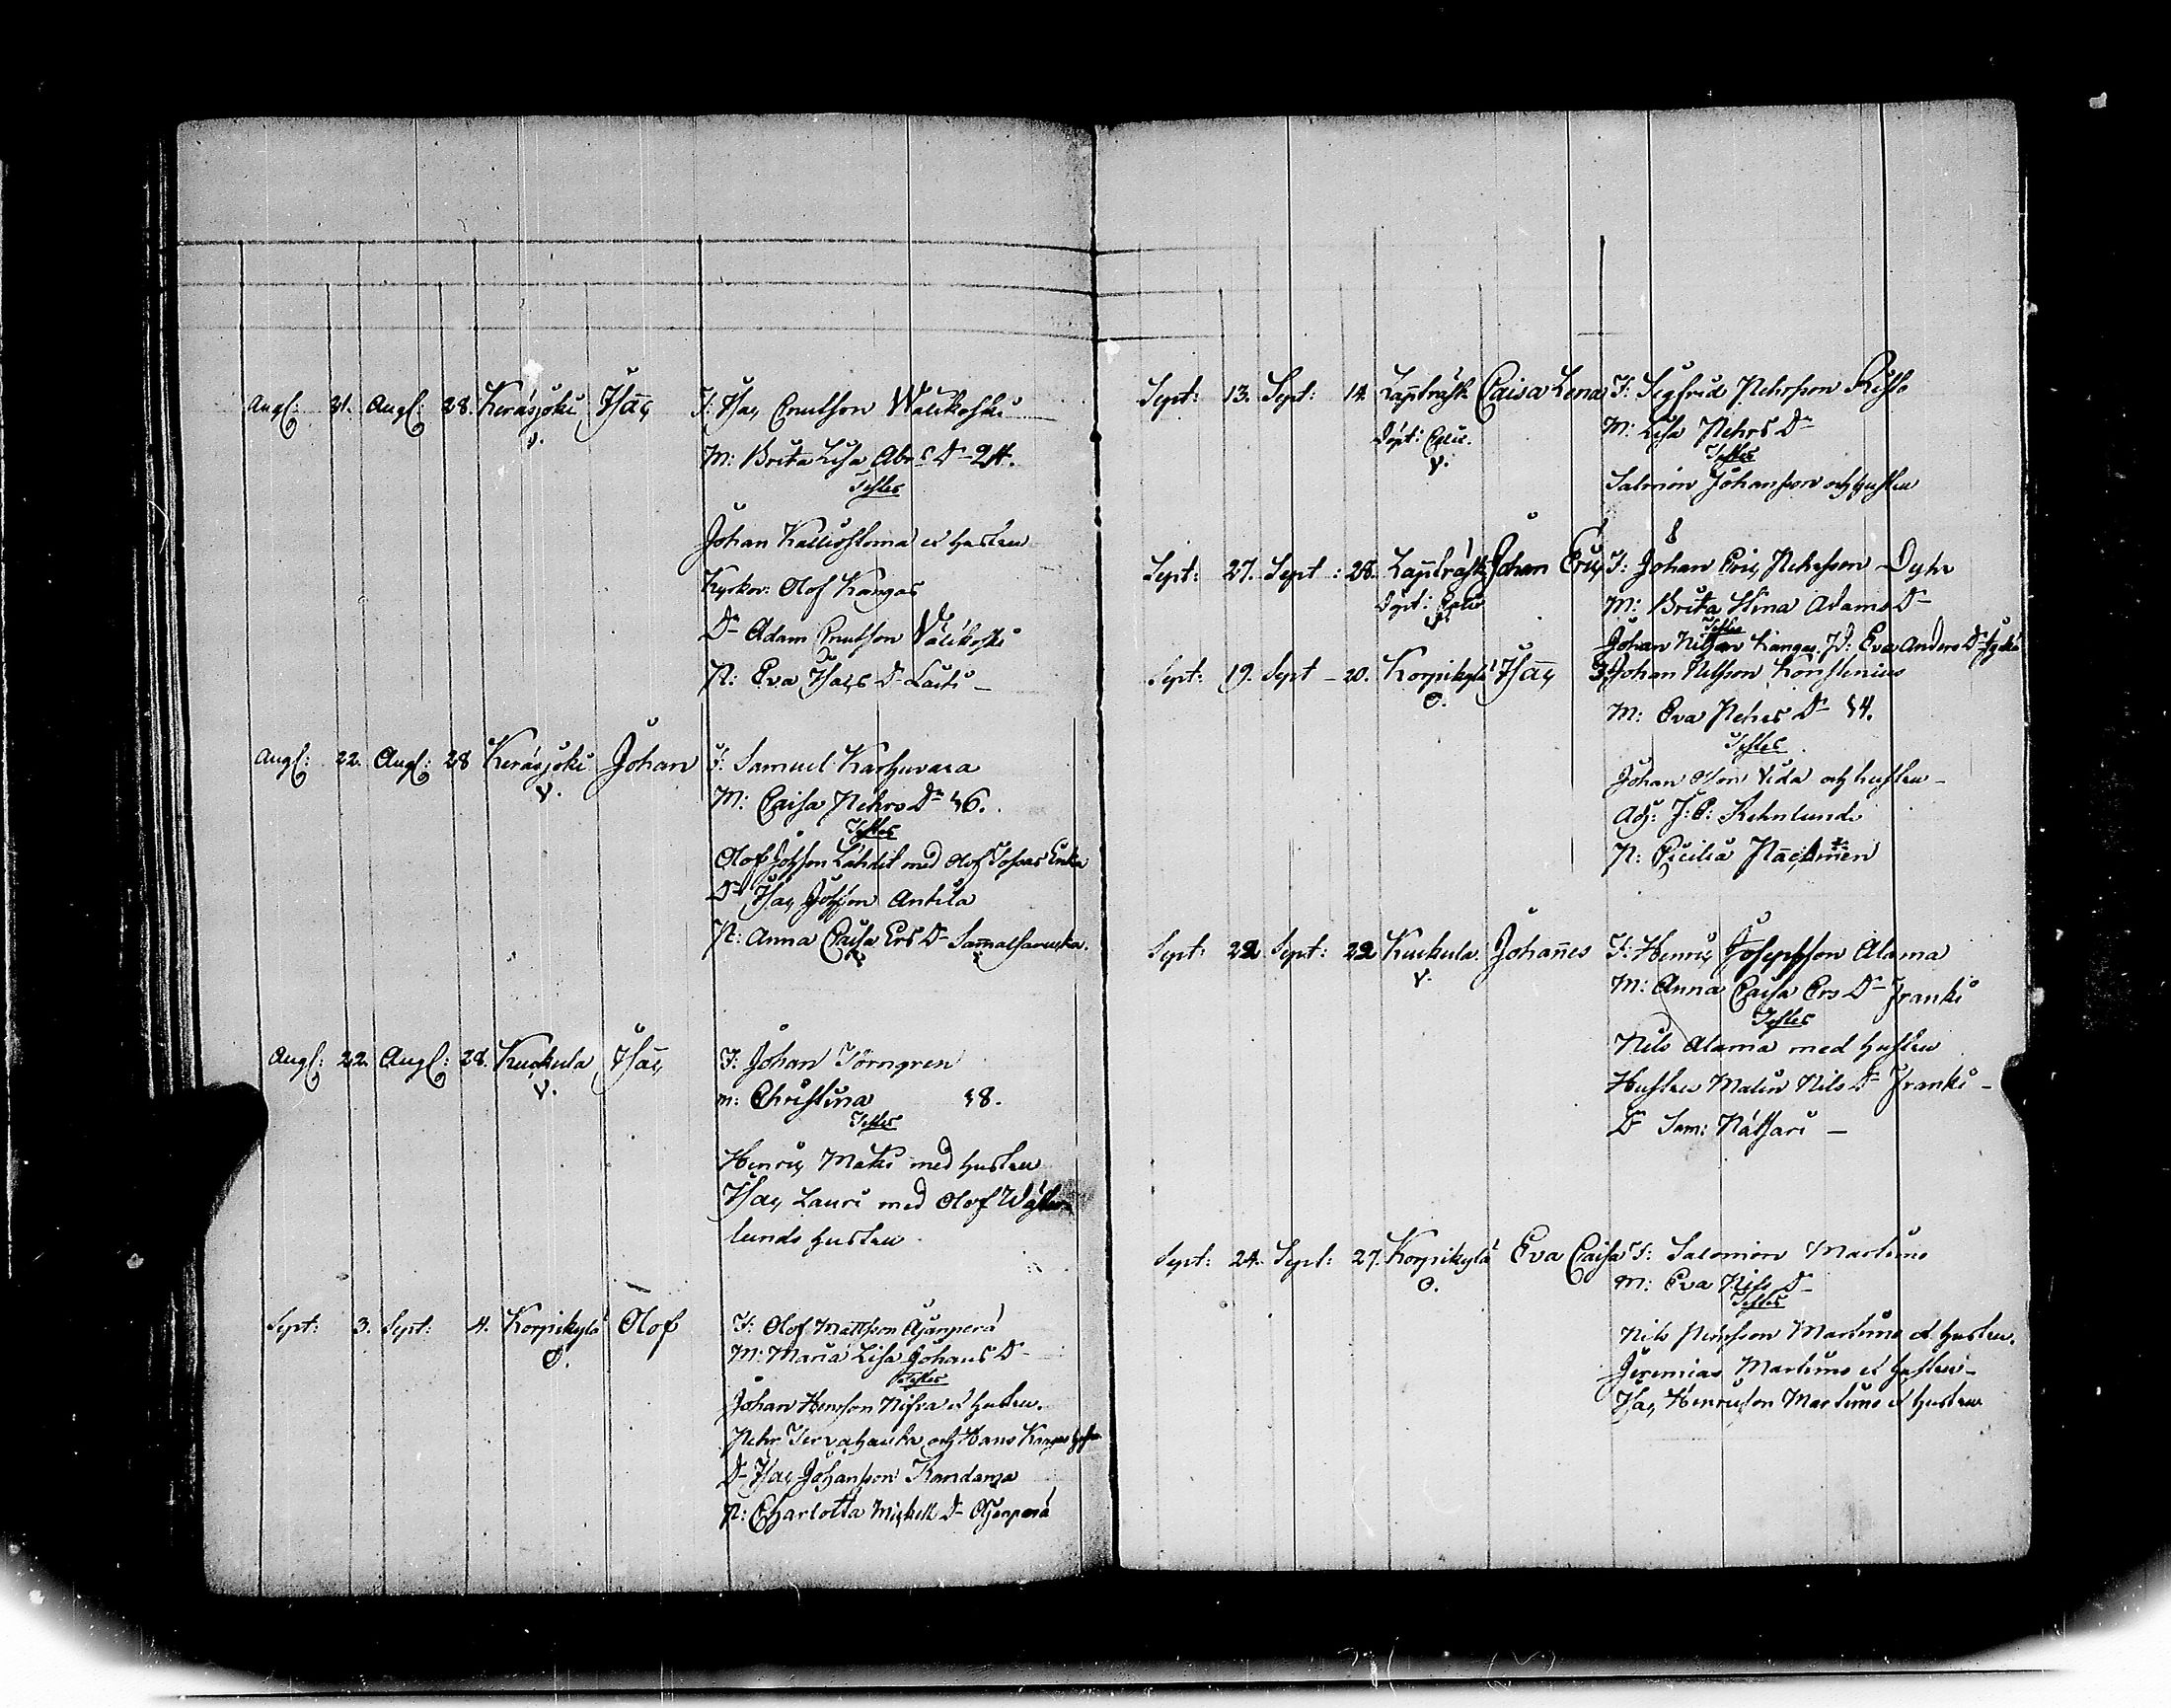 Aug: 21. Aug: 28. Keräsjoki Isac F: Isac Knutson Wälikoski
v. M: Brita Lisa Abrs Dr 24.
Testes
Johan Kalliostoma et hustru
Kyrkov: Olof Kangas
Dr Adam Knutson Wälikoski
P: Eva Isacs Dr Laiti
Aug: 22. Aug: 28 Keräsjoki Johan F: Samuel Karhuvara
v. M: Caisa Pehrs Dr 46.
Testes
Olof Johsson Lahdit med Olof
Dr Isac Johsson Antila
P: Anna Caisa Ers Dr
Aug: 22. Aug: 28. Kuckula Isac F: Johan Törngren
v. m: Christina 48.
Testes
Henric Maki med hustru
Isac Lauri med Olof Wäster
lunds hustru
Sept: 3. Sept: 4. Korpikylä Olof F: Olof Mattsson Äjänperä
O. M: Maria Lisa Johans Dr
Testes
Johan Henrsson Nifva et hustru.
Pehr Tervahauta och Hans Kangas
Dr Isac Johansson Randama
P: Charlotta Mickells Dr Äjänperä
Sept: 13. Sept: 14 Lappträsk Caisa Lena F: Sigfrid Pehrsson Risto
Döpt: v. M: Lisa Pehrs Dr
Testes
Salmon Johansson och hustru
Sept: 27. Sept: 28. Lappträsk Johan Eric F: Johan Eric Pehrsson Dyhr
Döpt: v. M: Brita Stina Adams Dr
Testes
Johan Nilsson Kangas. P: Eva Anders Dr
Sept: 19. Sept 20. Korpikylä Isac F: Johan Nilsson Konstenius
O. M: Eva Pehrs Dr 44.
Testes
Johan Olsson Vida och hustru
Adj: J: O: Rehnlund
P: Cicilia
Sept: 22 Sept: 22 Kuckula Johannes F: Henric Josephsson Alama
v. M: Anna Caisa Ers Dr Franki
Testes
Nils Alama med hustru
Hustru Malin Nils Dr Franki
Dr Sam: Nätsari
Sept: 24. Sept: 27. Korpikylä Eva Caisa F: Salomon Martimo
O. M: Eva Nils Dr
Testes
Nils Pehrsson Martimo et hustru.
Jeremias Martimo et hustru
Isac Henricsson Martimo et hustru